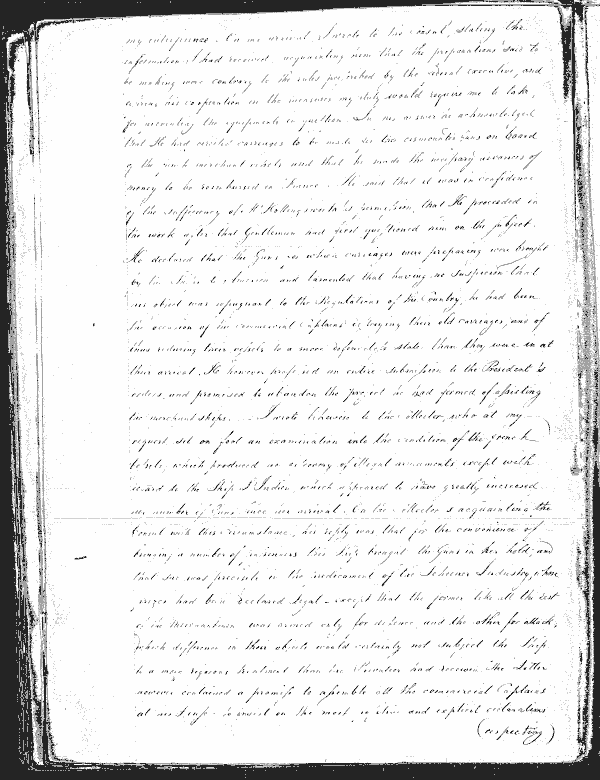 my enterprise. On my arrival I wrote to the Consul, stating the
information I had received, acquainting him that the preparations said to
be making were contrary to the rules prescribed by the federal executive, and
his cooperation in the measures my duty would require me to take,
for preventing the equipments in question. In his answer he acknowledged
that He had ordered carriages to be made for two dismounted Guns on board
of the french merchant vessels and that he made the necessary advances of
money to be reimbursed in France. He said that it was in confidence
of the sufficiency of Mr Hollingsworth's permission, that He proceeded in
the work after that Gentleman had first questioned him on the subject.
He declared that the Guns for which carriages were preparing were brought
by the Ships to America and lamented that having no suspicion that
his object was repugnant to the Regulations of the Country, he had been
the occasion of the commercial Captains destroying their old carriages, and of
thus reducing their vessels to a more defenceless state, than they were in at
their arrival. He however professed an entire submission to the President's
orders, and promised to abandon the project he had formed of assisting
the merchant ships. I wrote likewise to the Collector, who at my
request set on foot an examination into the condition of the french
vessels, which produced no discovery of illegal armaments except with
regard to the Ship L'Indien, which appeared to have greatly increased
her number of Guns since her arrival. On the Collector's acquainting the
Consul with this circumstance, his reply was that for the convenience of
bringing a number of this Ship brought the Guns in her hold, and
that she was precisely in the predicament of the Schooner Industry, whose
prizes had been declared legal except that the former like all the rest
of the Merchantmen was armed only for defence, and the other for attack,
which difference in their objects would certainly not subject the Ship
to a more rigorous treatment than the had received. The Letter
however contained a promise to assemble all the commercial Captains
at his House to insist on the most positive and explicit declarations
(respecting)